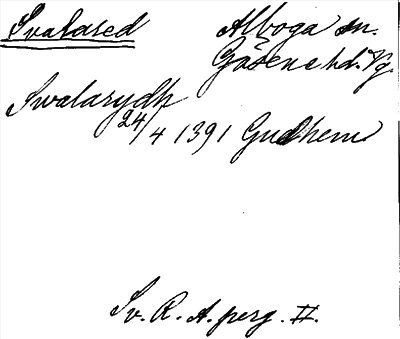 Svalared Alboga sn.
Gäsene hd. Vg
Swalarydh
24/4 1391 Gudhem
Sv. R. A. perg. II.